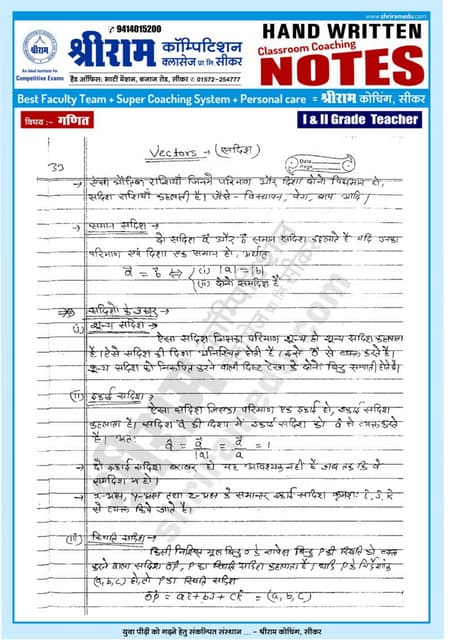 www.shriramedu.com
श्रीराम
An ideal Institute for
Competitive Exams
9414015200
श्रीराम कॉम्पिटिशन
क्लासेज प्रा.लि. सीकर
हैड ऑफिस: भाटी मेंशन, बजाज रोड, सीकर 01572-254777
HAND WRITTEN
Classroom Coaching
NOTES
Best Faculty Team + Super Coaching System + Personal care = श्रीराम कोचिंग, सीकर
विषय:- गणित
I & II Grade Teacher
39
Vectors → (सदिश)
→ ऐसी भौतिक राशियाँ जिनमें परिमाण और दिशा दोनों विद्यमान हो,
सदिश राशियाँ कहलाती है। जैसे- विस्थापन, वेग, बल आदि।
→ समान सदिश →
दो सदिश a⃗ और b⃗ समान सदिश कहलाते है यदि उनका
परिमाण एवं दिशा एक समान हो, अर्थात
a⃗ = b⃗ ⇔ (i) |a| = |b|
(ii) दोनों समदिश है
सदिशों के प्रकार
(i) शून्य सदिश →
ऐसा सदिश जिसका परिमाण शून्य हो शून्य सदिश कहलाता
है। ऐसे सदिश की दिशा अनिश्चित होती है। इसे 0⃗ से व्यक्त करते है।
शून्य सदिश को निरूपित करने वाली दिष्ट रेखा के दोनों बिन्दु सम्पाती होते है।
(ii) इकाई सदिश →
ऐसा सदिश जिसका परिमाण एक इकाई हो, इकाई सदिश
कहलाता है। सदिश a⃗ की दिशा में इकाई सदिश को â से व्यक्त करते
है। अतः
â = a⃗/|a⃗| = a⃗/a = 1
→ दो इकाई सदिश बराबर हो यह आवश्यक नहीं है जब तक कि वे
समदिश न हो।
→ x-अक्ष, y-अक्ष तथा z-अक्ष के समान्तर इकाई सदिश क्रमशः î, ĵ, k̂
से व्यक्त किये जाते है।
(iii) स्थिति सदिश →
किसी निश्चित मूल बिन्दु O के सापेक्ष बिन्दु P की स्थिति को व्यक्त
करने वाला सदिश OP⃗, P का स्थिति सदिश कहलाता है। यदि P के निर्देशांक
(a, b, c) हो तो P का स्थिति सदिश
OP⃗ = aî + bĵ + ck̂ = (a, b, c)
युवा पीढ़ी को गढ़ने हेतु संकल्पित संस्थान ... - श्रीराम कोचिंग, सीकर